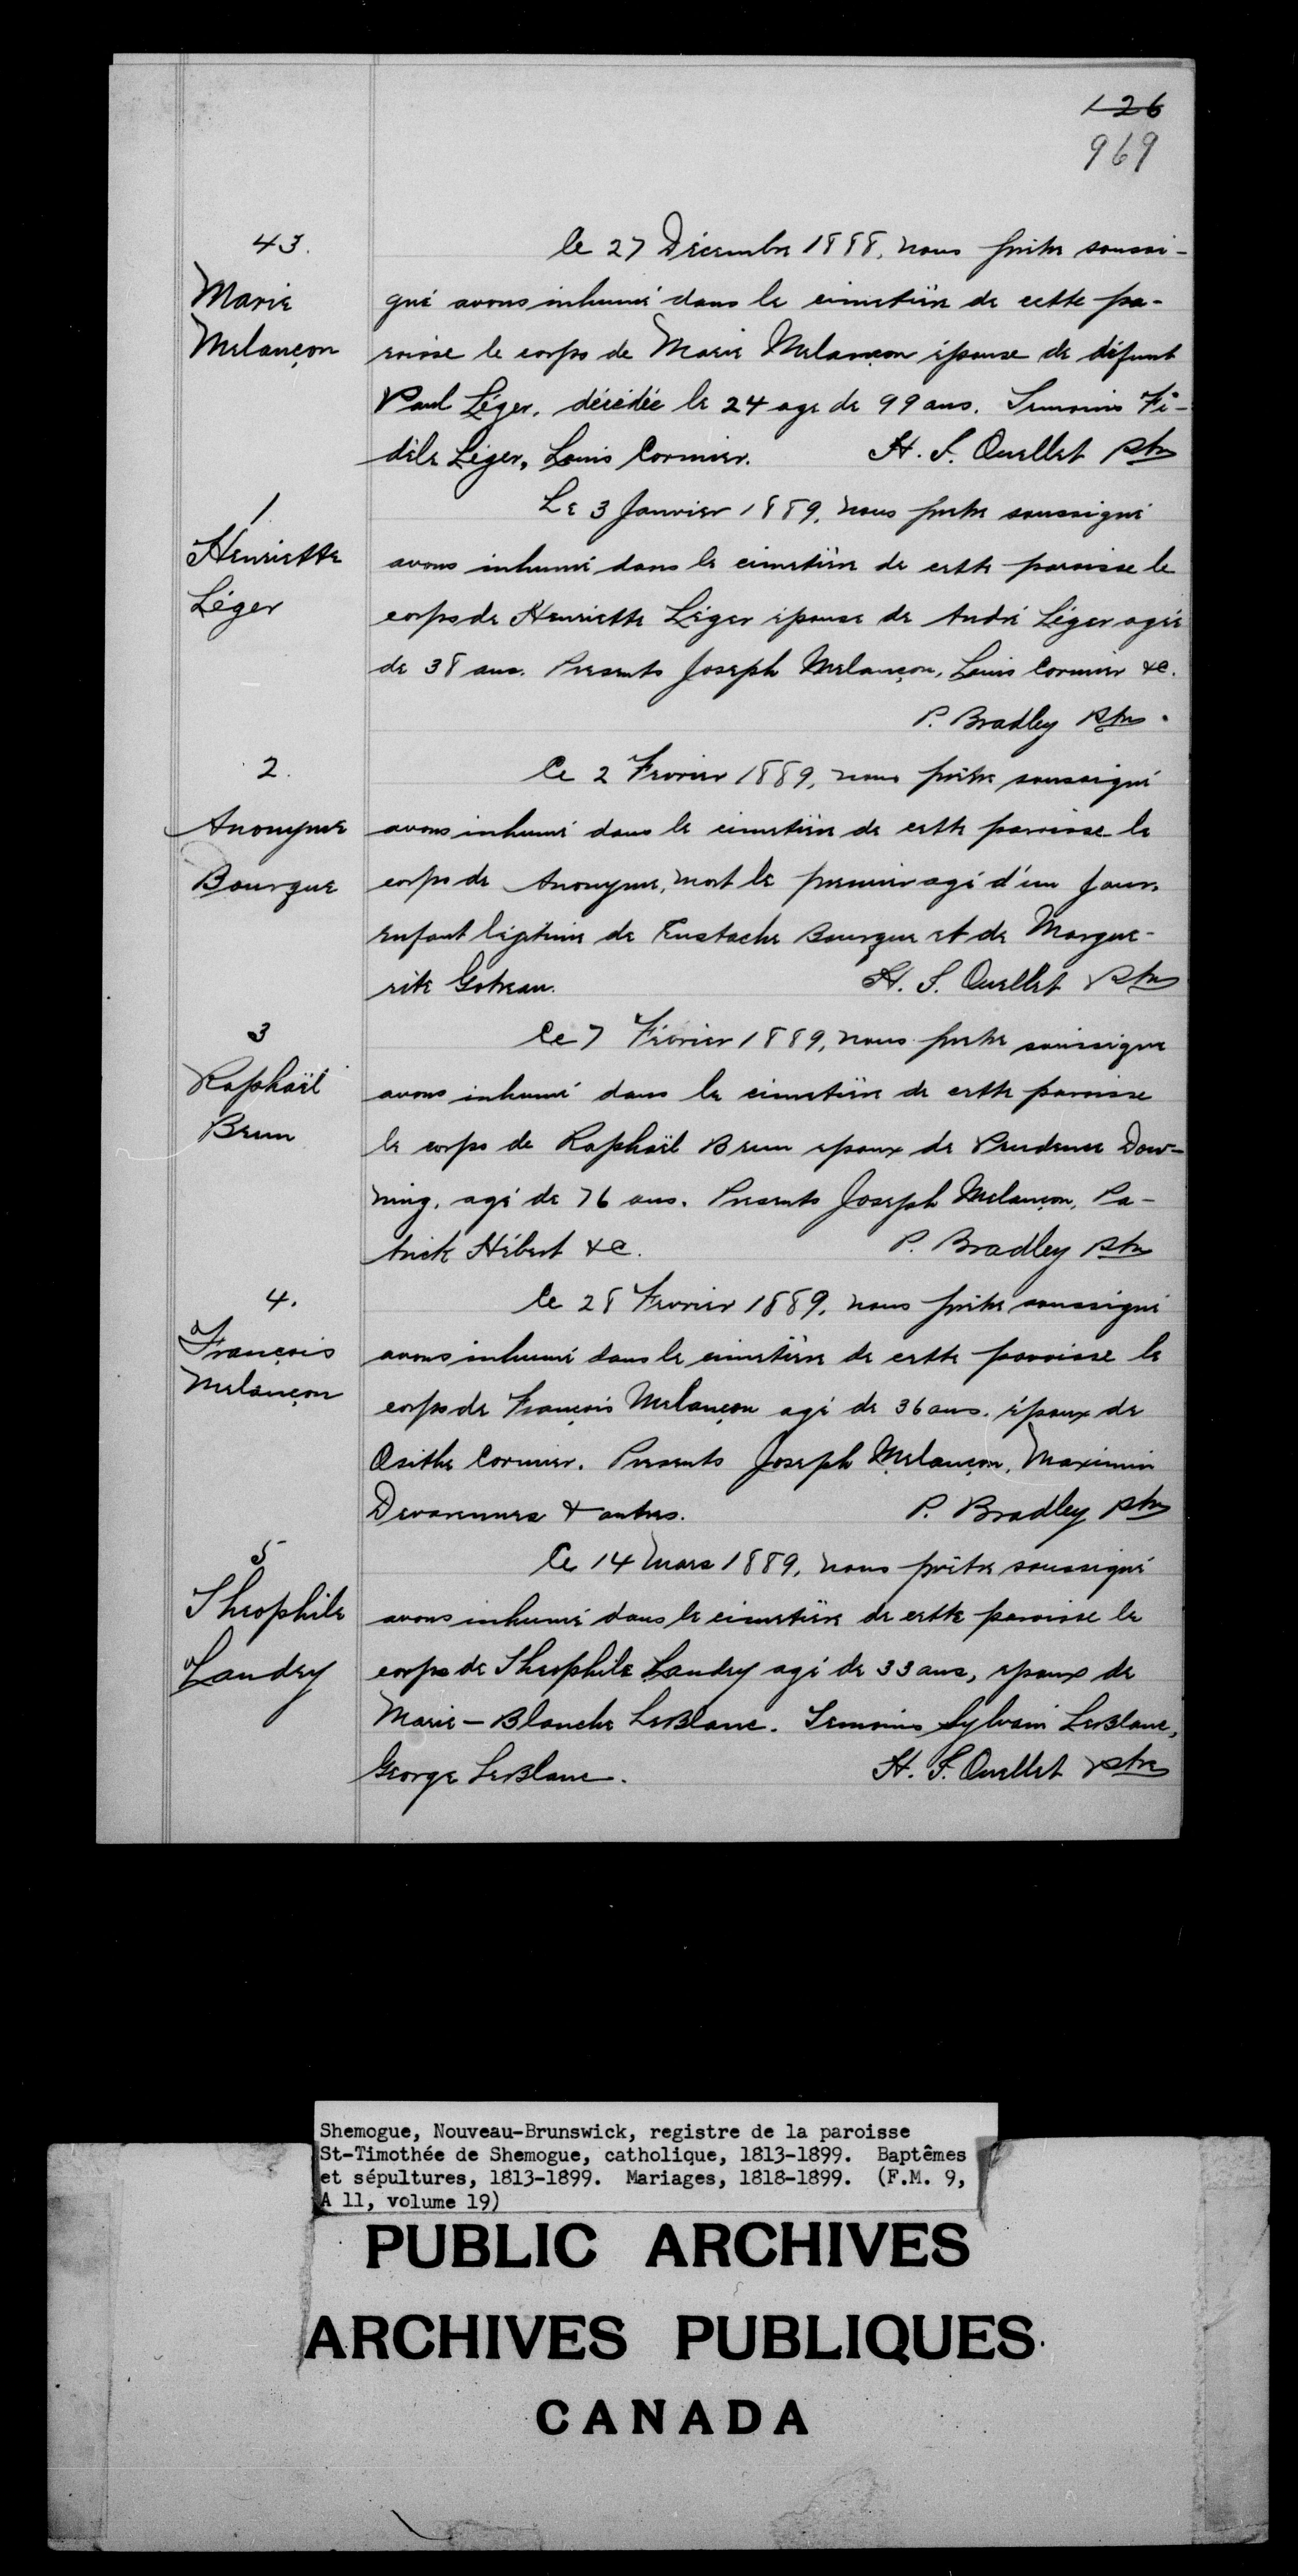 126
969
43.
Marie
Melançon
Le 27 Décembre 1888, nous prêtre soussi-
gné avons inhumé dans le cimetière de cette pa-
roisse le corps de Marie Melançon épouse de défunt
Paul Léger, décédée le 24 age de 99 ans. Temoins Fi-
dèle Léger, Louis Cormier. H. S. Ouellet Ptre
1
Henriette
Léger
Le 3 Janvier 1889, nous prêtre soussigné
avons inhumé dans le cimetière de cette paroisse le
corps de Henriette Léger épouse de André Léger agée
de 38 ans. Presents Joseph Melançon, Louis Cormier &c.
P. Bradley Ptre.
2.
Anonyme
Bourque
Le 2 Fevrier 1889, nous prêtre soussigné
avons inhumé dans le cimetière de cette paroisse le
corps de Anonyme, mort le premier agé d'un jour,
enfant légitime de Eustache Bourque et de Margue-
rite Gotreau. H. S. Ouellet Ptre
3
Raphaël
Brun
Le 7 Février 1889, nous pretre soussigne
avons inhumé dans le cimetière de cette paroisse
le corps de Raphaël Brun epoux de Prudence Dow-
ning, agé de 76 ans. Presents Joseph Melançon, Pa-
trick Hébert &c. P. Bradley Ptre
4.
François
Melançon
Le 28 Fevrier 1889, nous prêtre soussigné
avons inhumé dans le cimetière de cette paroisse le
corps de François Melançon agé de 36 ans. époux de
Osithe Cormier. Presents Joseph Melançon, Maximin
Devarennes & autres. P. Bradley Ptre
5
Theophile
Landry
Le 14 Mars 1889, nous prêtre soussigné
avons inhumé dans le cimetière de cette paroisse le
corps de Theophile Landry agé de 33 ans, epoux de
Marie-Blanche LeBlanc. Temoins Sylvain LeBlanc,
George LeBlanc. H. S. Ouellet Ptre
Shemogue, Nouveau-Brunswick, registre de la paroisse
St-Timothée de Shemogue, catholique, 1813-1899. Baptêmes
et sépultures, 1813-1899. Mariages, 1818-1899. (F.M. 9,
A 11, volume 19)
PUBLIC ARCHIVES
ARCHIVES PUBLIQUES
CANADA